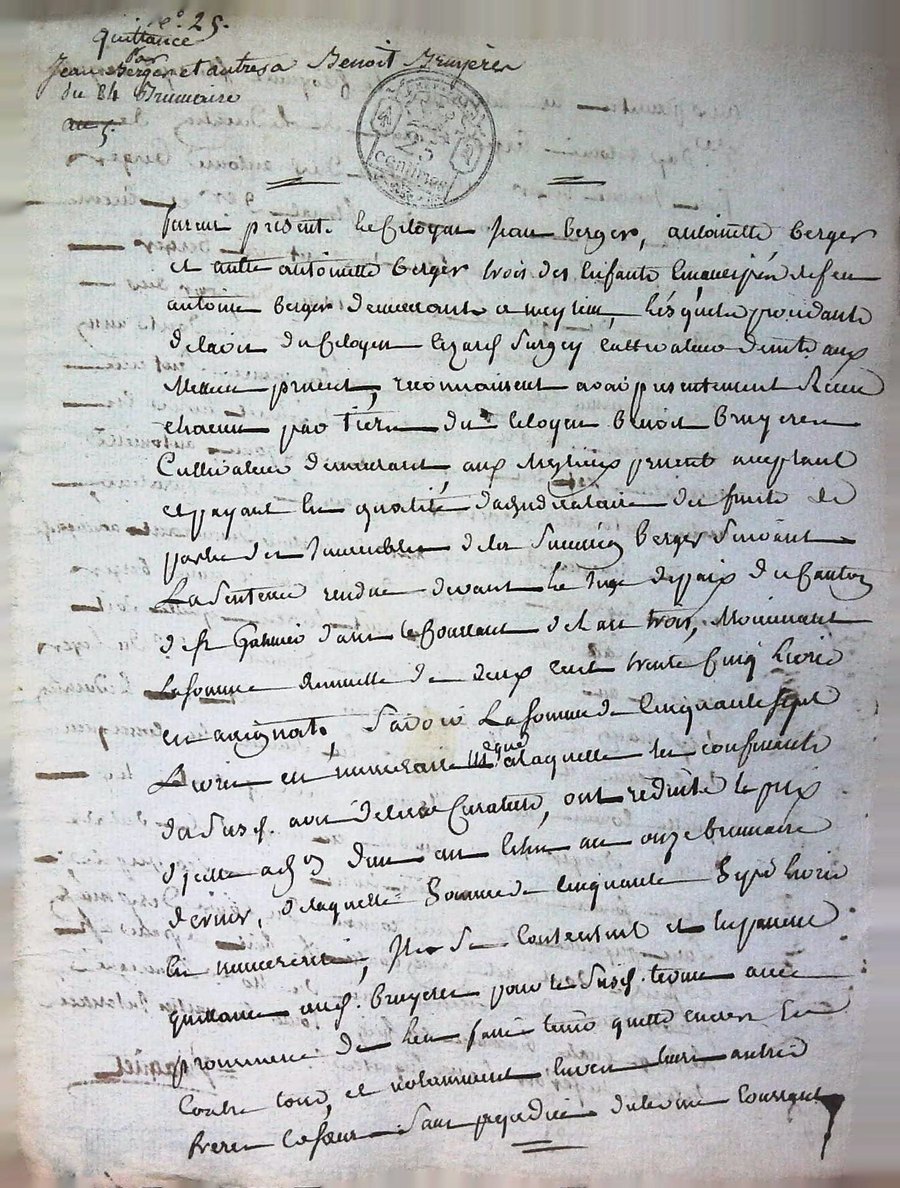 n.° 25.
quittance
par
Jean Berger et autres a Benoit Bruyères
du 24 Brumaire
an 5.
25
centimes
furent présents le Citoyen jean berger, antoinette berger
et autre antoinette berger trois des Enfants Emancipés de feu
antoine berger demeurants a meylieu, lésquels procédants
de lavis du Citoyen Surgey cultivateur demt. aux
present, reconnaissent avoir présentement Receu
chacun par tiers du Citoyen benoit bruyeres
Cultivateur demeurant aux present acceptant
et payant En qualité dadjudicataire des fruits de
partie des Immeubles delad. Succion berger Suivant
La Sentence rendue devant le Juge de paix du Canton
de st. Galmier dans le Courant de lan trois, Moiennant
la somme annuelle de deux cent trente Cinq livres
en assignats, Savoir La somme de Cinquante sept
Livres en numeraire mque a laquelle les confessants
du Susd. avis de leur Curateur, ont reduits le prix
d'un an Echu au onze brumaire
dernier, de laquelle Somme de Cinquante Sept livres
En numeraire, Ils Se Contentent et En passent
quittance aud. bruyeres pour le Susd. terme avec
promesse de l'en faire tenir quitte envers Et
Contre tous, et notamment Envers leurs autres
freres Et soeurs Sans préjudice du terme Courant